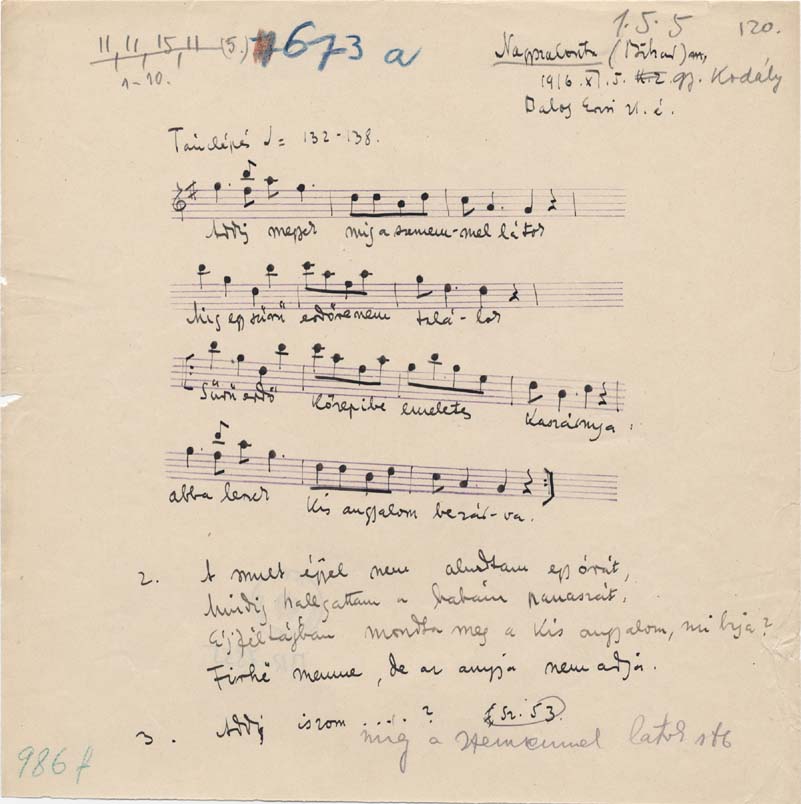 1.5.5 120.
11, 11, 15, 11 (5.) 673 a
1-10.
Nagyszalonta (Bihar) m,
1916. XI. 5. gy. Kodály
Balog Erzsi 21. é.
Tánclépés = 132-138.
Addig megyek míg a szemem-mel látok
Míg egy sűrű erdőre nem talá-lok
Sűrű erdő közepibe emeletes kaszárnya:
abba leszek kis angyalom bezár-va.
2. A mult éjjel nem aludtam egy órát,
Mindig hallgattam a babám panaszát.
Éjféltájban mondta meg a kis angyalom, mi baja?
Firhë menne, de az anyja nem adja.
3. Addig iszom . . . . ? Sz. 53.
míg a szemeimmel látok stb
986 f